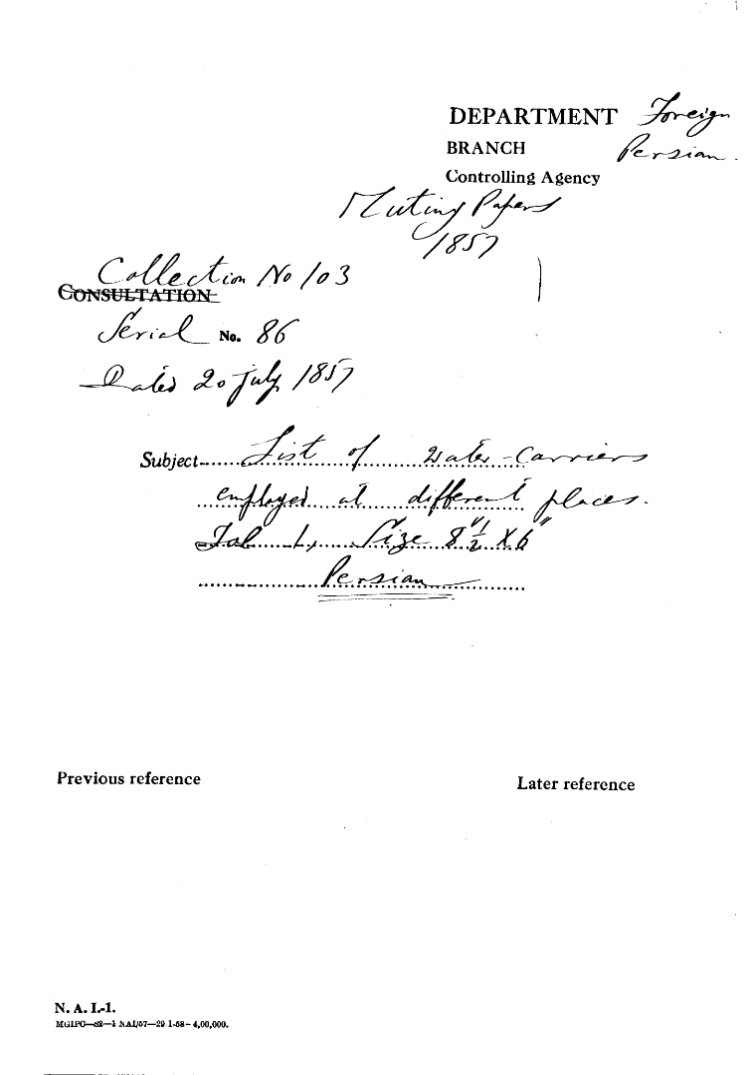 DEPARTMENT Foreign
BRANCH Persian.
Controlling Agency
Mutiny Papers
1857
Collection No 103
CONSULTATION
Serial No. 86
Dated 20 July 1857
Subject List of water-carriers
employed at different places.
Fol 1, Size 8"½ X 6"
Persian
Previous reference
Later reference
N. A. I.-1.
MGIPC—S2—1 NAI/57—29-1-58—4,00,000.